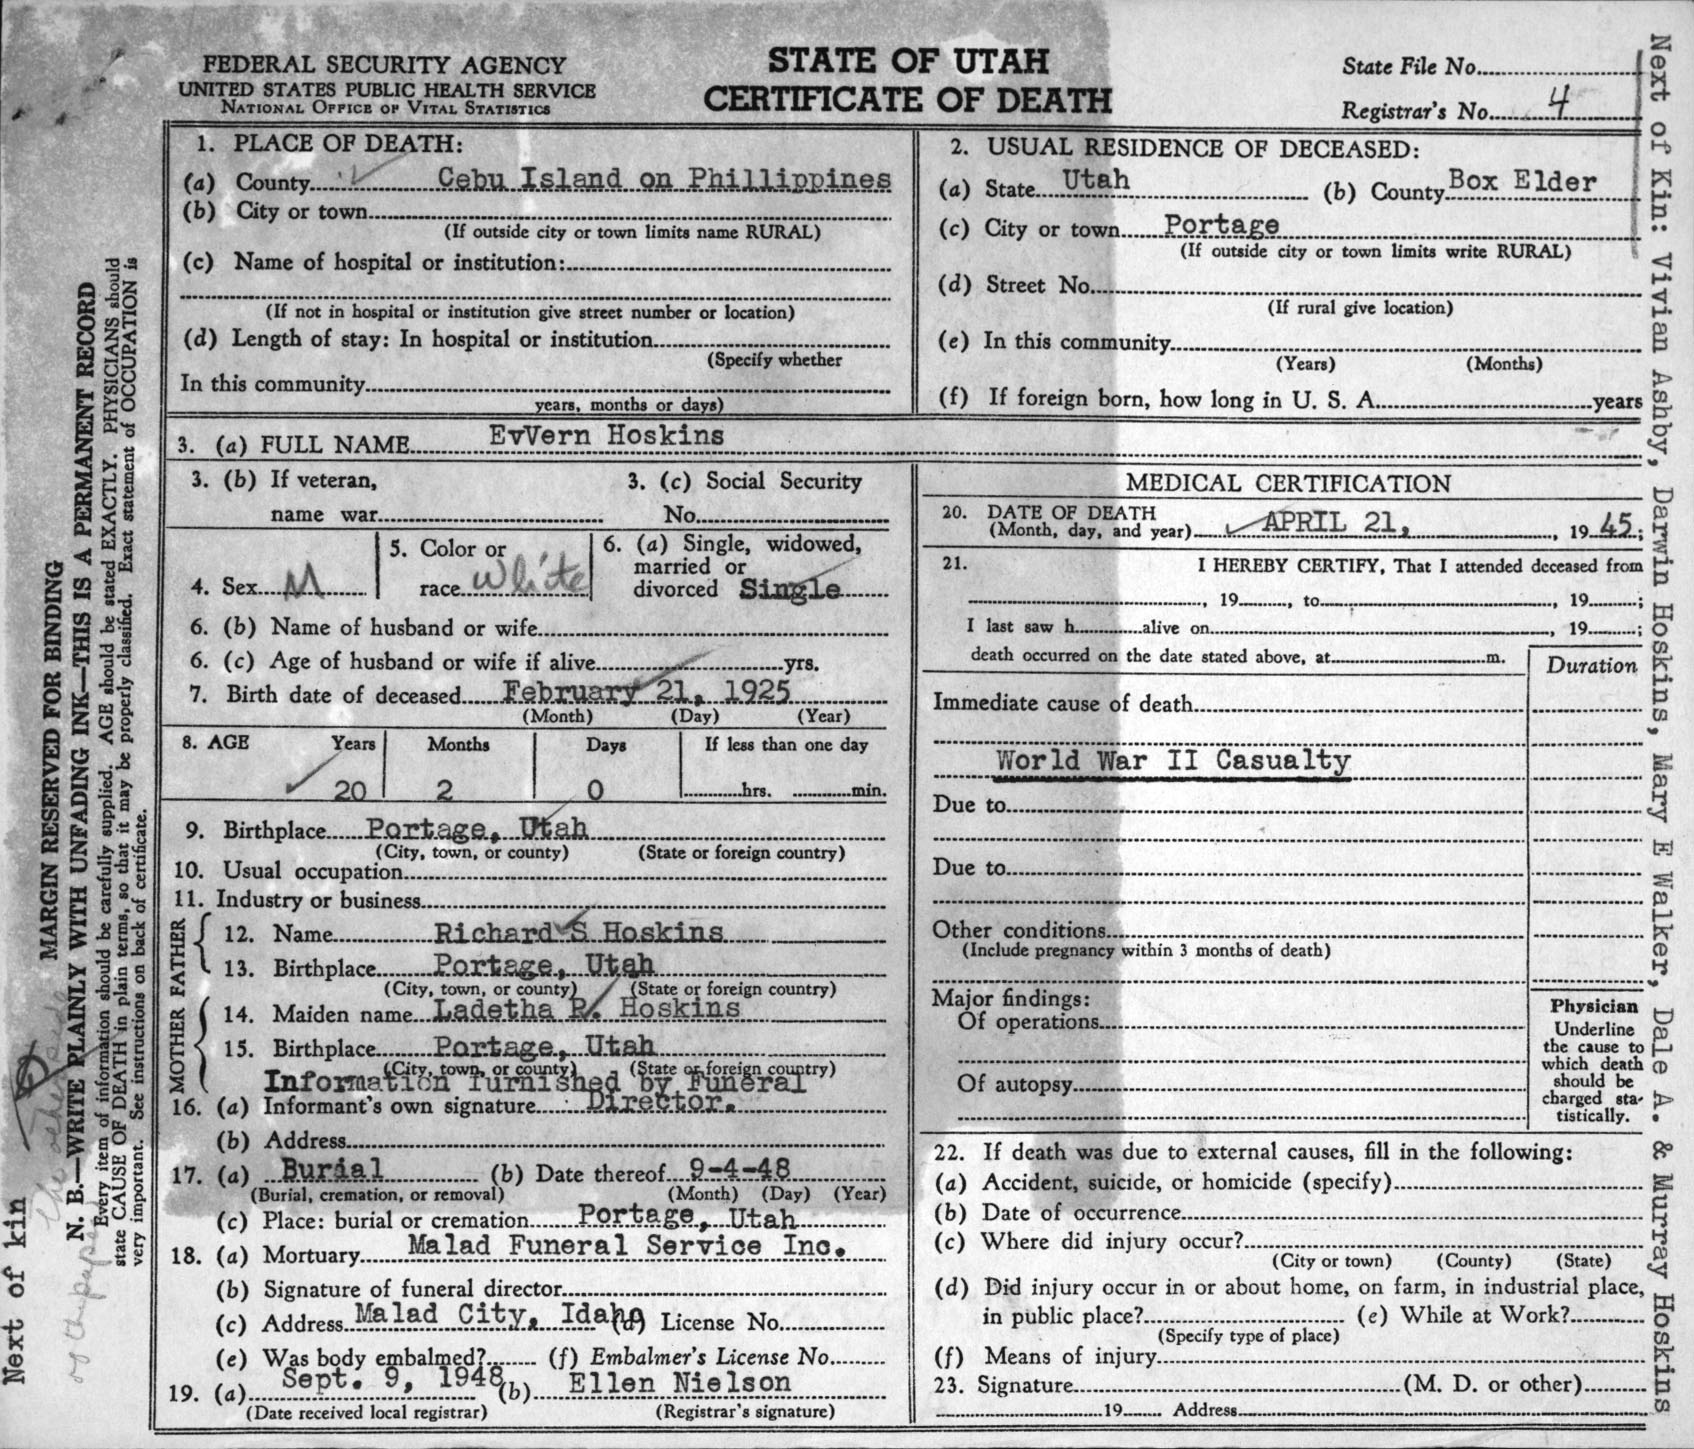 FEDERAL SECURITY AGENCY
UNITED STATES PUBLIC HEALTH SERVICE
NATIONAL OFFICE OF VITAL STATISTICS
STATE OF UTAH
CERTIFICATE OF DEATH
State File No.
Registrar's No. 4
1. PLACE OF DEATH:
(a) County Cebu Island on Phillippines
(b) City or town
(If outside city or town limits name RURAL)
(c) Name of hospital or institution:
(If not in hospital or institution give street number or location)
(d) Length of stay: In hospital or institution
(Specify whether
In this community
years, months or days)
2. USUAL RESIDENCE OF DECEASED:
(a) State Utah (b) County Box Elder
(c) City or town Portage
(If outside city or town limits write RURAL)
(d) Street No.
(If rural give location)
(e) In this community
(Years) (Months)
(f) If foreign born, how long in U. S. A. years
3. (a) FULL NAME EvVern Hoskins
3. (b) If veteran, 3. (c) Social Security
name war No.
4. Sex M
5. Color or
race White
6. (a) Single, widowed,
married or
divorced Single
6. (b) Name of husband or wife
6. (c) Age of husband or wife if alive yrs.
7. Birth date of deceased February 21, 1925
(Month) (Day) (Year)
8. AGE Years Months Days If less than one day
20 2 0 hrs. min.
9. Birthplace Portage, Utah
(City, town, or county) (State or foreign country)
10. Usual occupation
11. Industry or business
FATHER
12. Name Richard S Hoskins
13. Birthplace Portage, Utah
(City, town, or county) (State or foreign country)
MOTHER
14. Maiden name Ladetha R. Hoskins
15. Birthplace Portage, Utah
(City, town, or county) (State or foreign country)
Information furnished by Funeral
16. (a) Informant's own signature Director.
(b) Address
17. (a) Burial (b) Date thereof 9-4-48
(Burial, cremation, or removal) (Month) (Day) (Year)
(c) Place: burial or cremation Portage, Utah
18. (a) Mortuary Malad Funeral Service Inc.
(b) Signature of funeral director
(c) Address Malad City, Idaho (d) License No.
(e) Was body embalmed? (f) Embalmer's License No.
19. (a) Sept. 9, 1948 (b) Ellen Nielson
(Date received local registrar) (Registrar's signature)
MEDICAL CERTIFICATION
20. DATE OF DEATH
(Month, day, and year) APRIL 21, 19 45;
21. I HEREBY CERTIFY, That I attended deceased from
, 19 , to , 19 ;
I last saw h alive on , 19 ;
death occurred on the date stated above, at m.
Duration
Immediate cause of death
World War II Casualty
Due to
Due to
Other conditions
(Include pregnancy within 3 months of death)
Major findings:
Of operations
Of autopsy
Physician
Underline
the cause to
which death
should be
charged sta-
tistically.
22. If death was due to external causes, fill in the following:
(a) Accident, suicide, or homicide (specify)
(b) Date of occurrence
(c) Where did injury occur?
(City or town) (County) (State)
(d) Did injury occur in or about home, on farm, in industrial place,
in public place? (e) While at Work?
(Specify type of place)
(f) Means of injury
23. Signature (M. D. or other)
19 Address
Next of Kin: Vivian Ashby, Darwin Hoskins, Mary E Walker, Dale A. & Murray Hoskins
MARGIN RESERVED FOR BINDING
N. B.—WRITE PLAINLY WITH UNFADING INK—THIS IS A PERMANENT RECORD
Every item of information should be carefully supplied. AGE should be stated EXACTLY. PHYSICIANS should
state CAUSE OF DEATH in plain terms, so that it may be properly classified. Exact statement of OCCUPATION is
very important. See instructions on back of certificate.
Next of kin